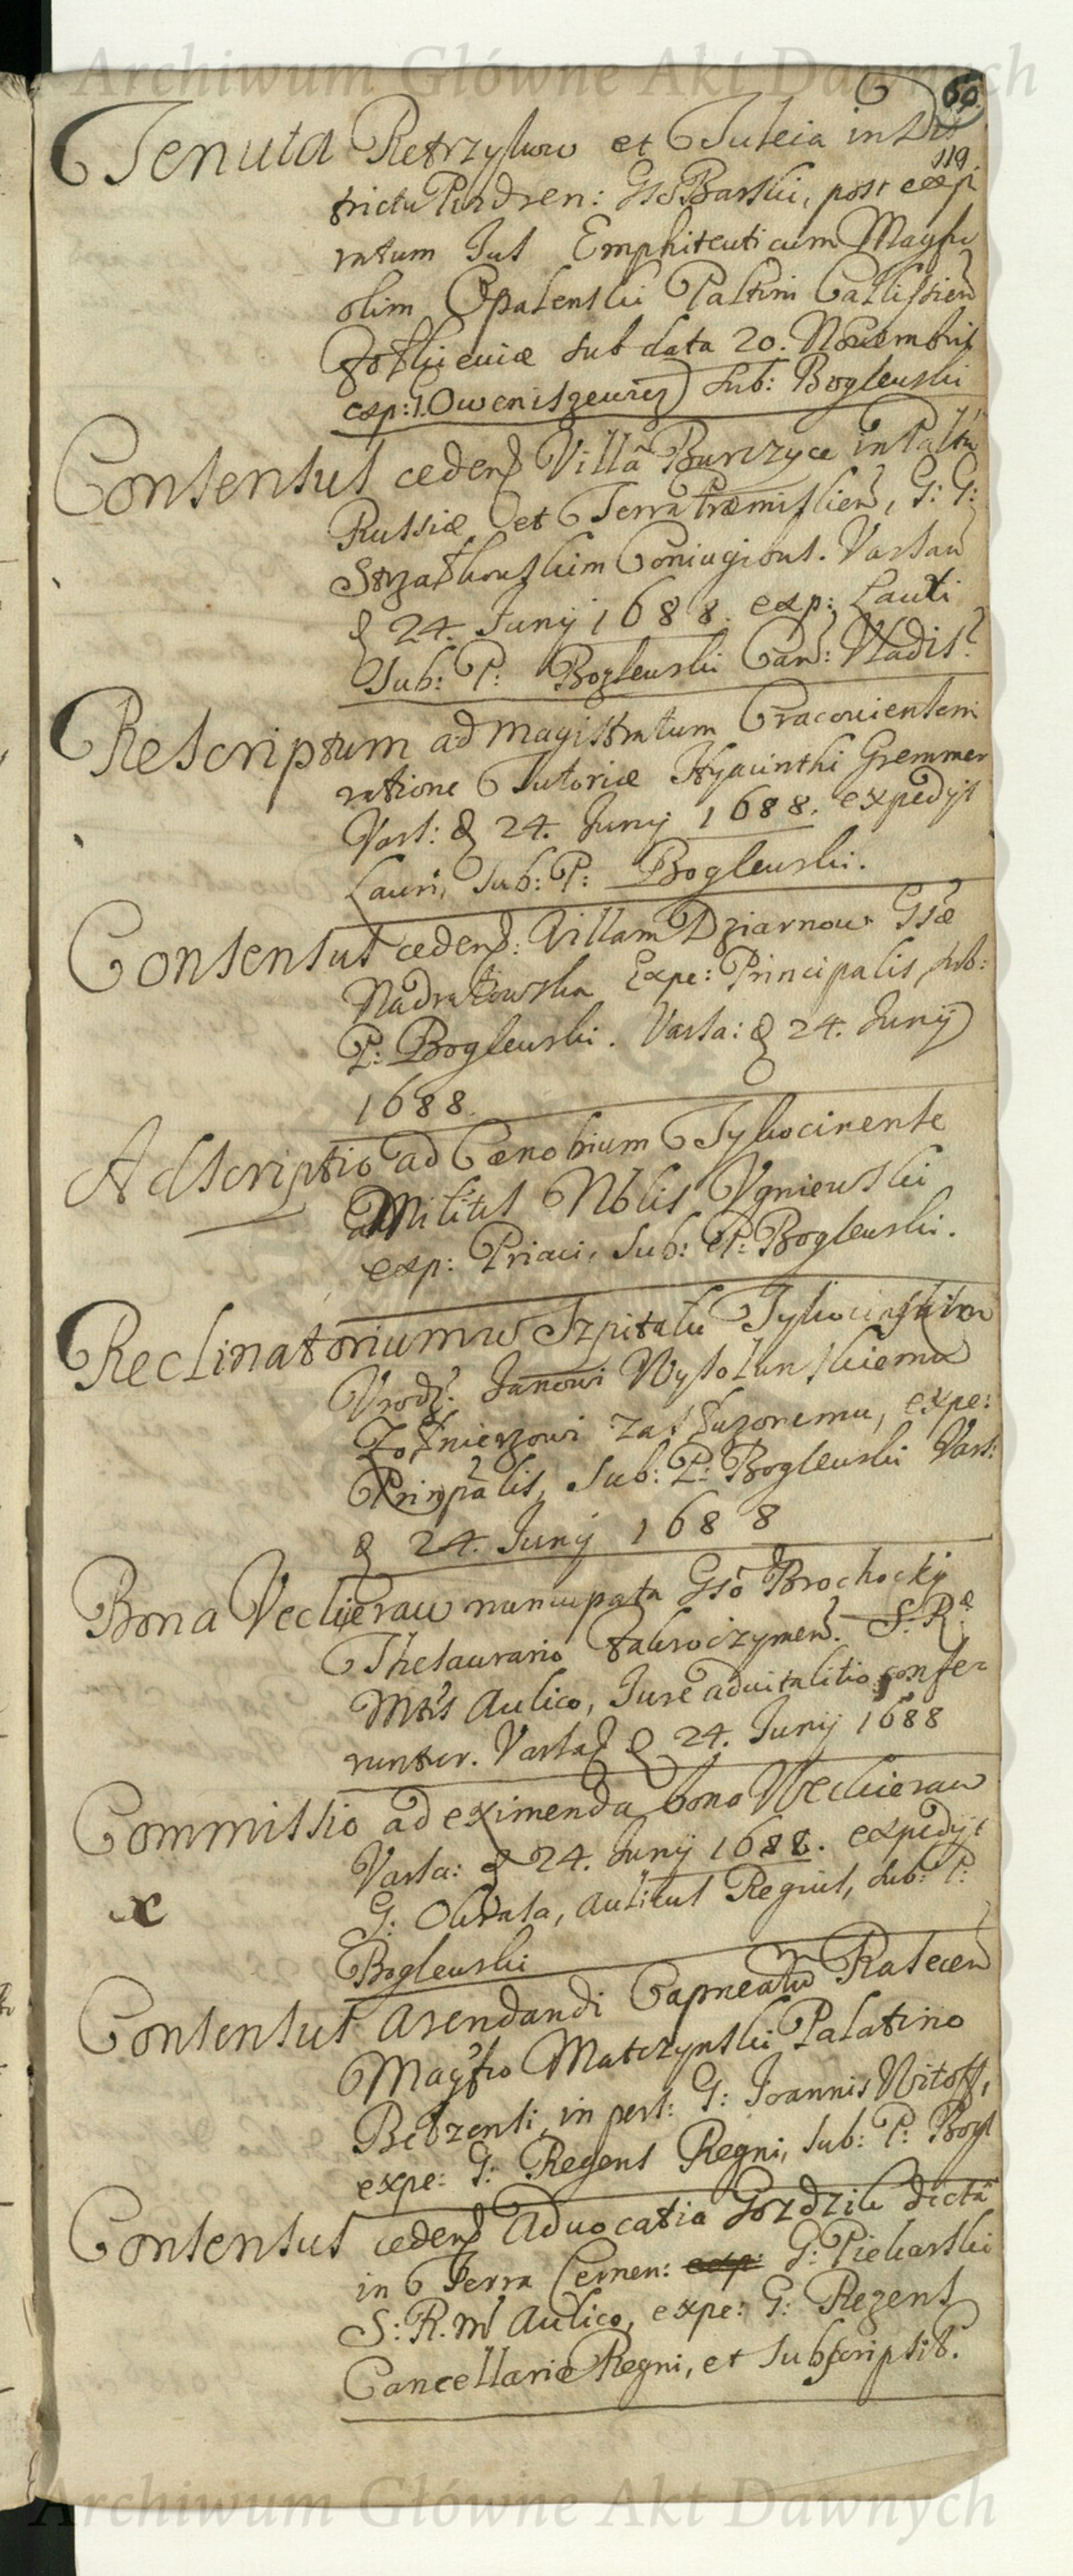 Archiwum Główne Akt Dawnych
60
119
Tenuta Retrzykow et Tuleia in Dis
trictu Pizdren: Gso Barski, post expi
ratum Jus Emphiteuticum Magfci
olim Opalenski Paltini Callissien
Zolkieviæ sub data 20. Novembris
exp: I. Oweniszewicz sub: Boglewski
Consensus cedend Villã Burczyce in Paltu
Russiæ et Terra Præmislien, G: G:
Strzalkowskim Coniugibus. Varsav
d 24. Junij 1688. exp: Lauxi
Sub: P: Boglewski Can: Vladis:
Rescriptum ad Magistratum Cracoviensem
ratione Tutoriæ Hyacinthi Gremmer
Vars: d 24. Junij 1688. expedijt
Lauri, sub: P: Boglewski.
Consensus cedend: Villam Dziarnow Gsæ
Nadratowska Expe: Principalis, sub:
P: Boglewski. Varsa: d 24. Junij
1688.
Adscriptio ad Cænobium Tykocinense
Militis Nblis Vgniewski
exp: Priaci, sub: P: Boglewski.
Reclinatorium w Szpitalu Tykocinskim
Vrodz. Janowi Wysokinskiemu
Zołnierzowi zasłuzonemu, expe:
Prinpãlis, Sub: P: Boglewski Vars:
d 24. Junij 1688
Bona Veckieraw nuncupata Gso Brochocky
Thesaurario Zakroczymen. S. R.
Mtis Aulico, Jure advitalitio confer
runtur. Varsa d 24. Junij 1688
Commissio ad eximenda bona Weckieraw
Varsa: d 24. Junij 1688. expedijt
x
G. Aulicus Regius, sub: P:
Boglewski
Consensus arendandi Capneatu Ratecen
Magfco Matczynski Palatino
Belzensi, in pers: G: Joannis Witoff,
expe: G: Regens Regni, sub: P: Bogl
Consensus cedend Advocatia Gozdzik dictã
in Terra Cernen: exp: G: Piekarski
S: R. M Aulico, expe: G: Regens
Cancellariæ Regni, et subscripsit.
Archiwum Główne Akt Dawnych